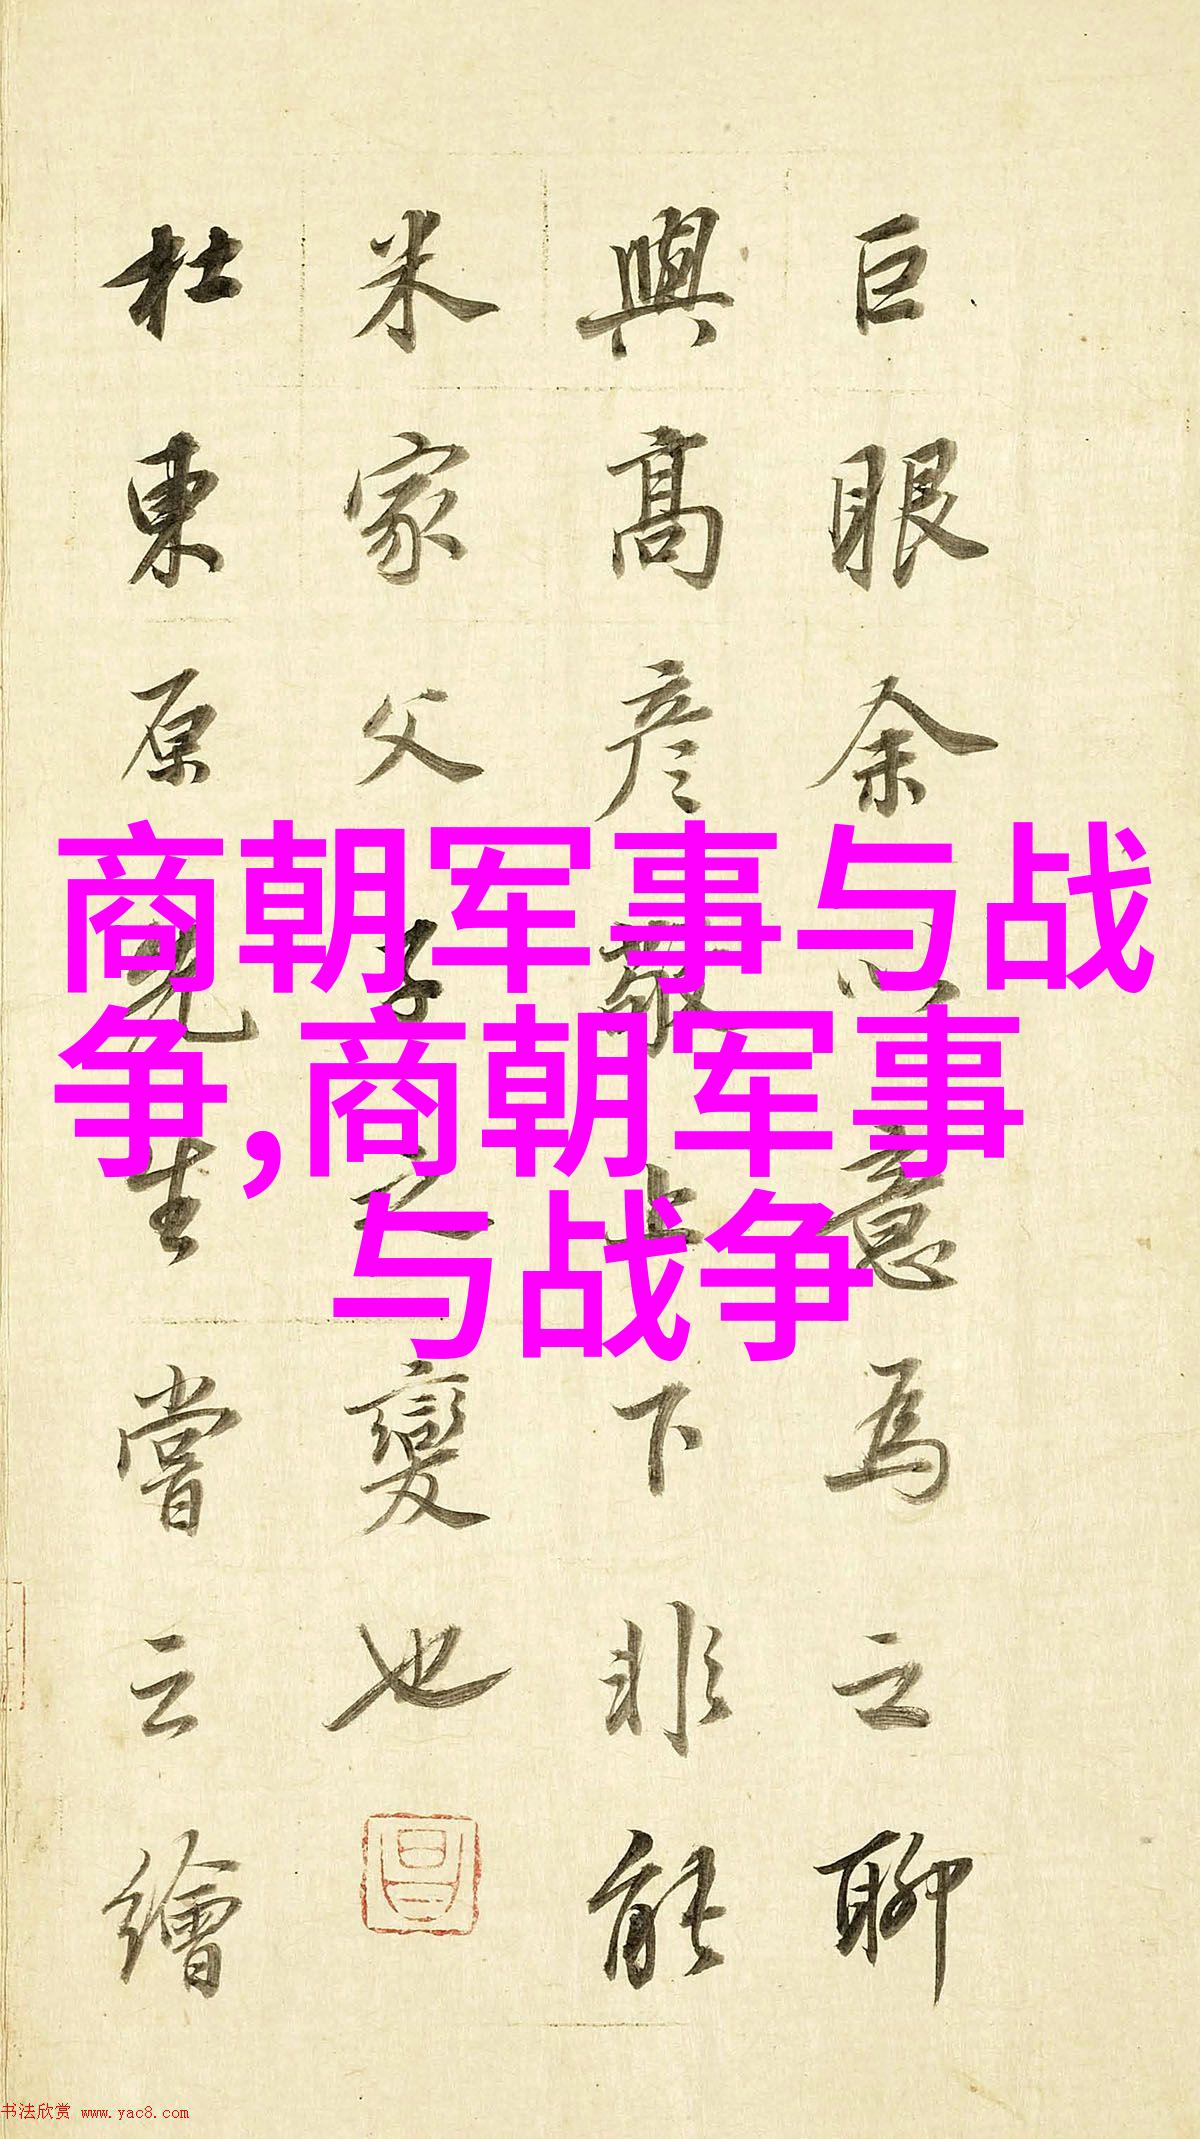 商朝军事与战
争,商朝军事
与战争
巨眼余意為之聊
與高彥敬上下非能
米家父子之變也
杜東原先生嘗云繪
书法欣赏 www.yac8.com